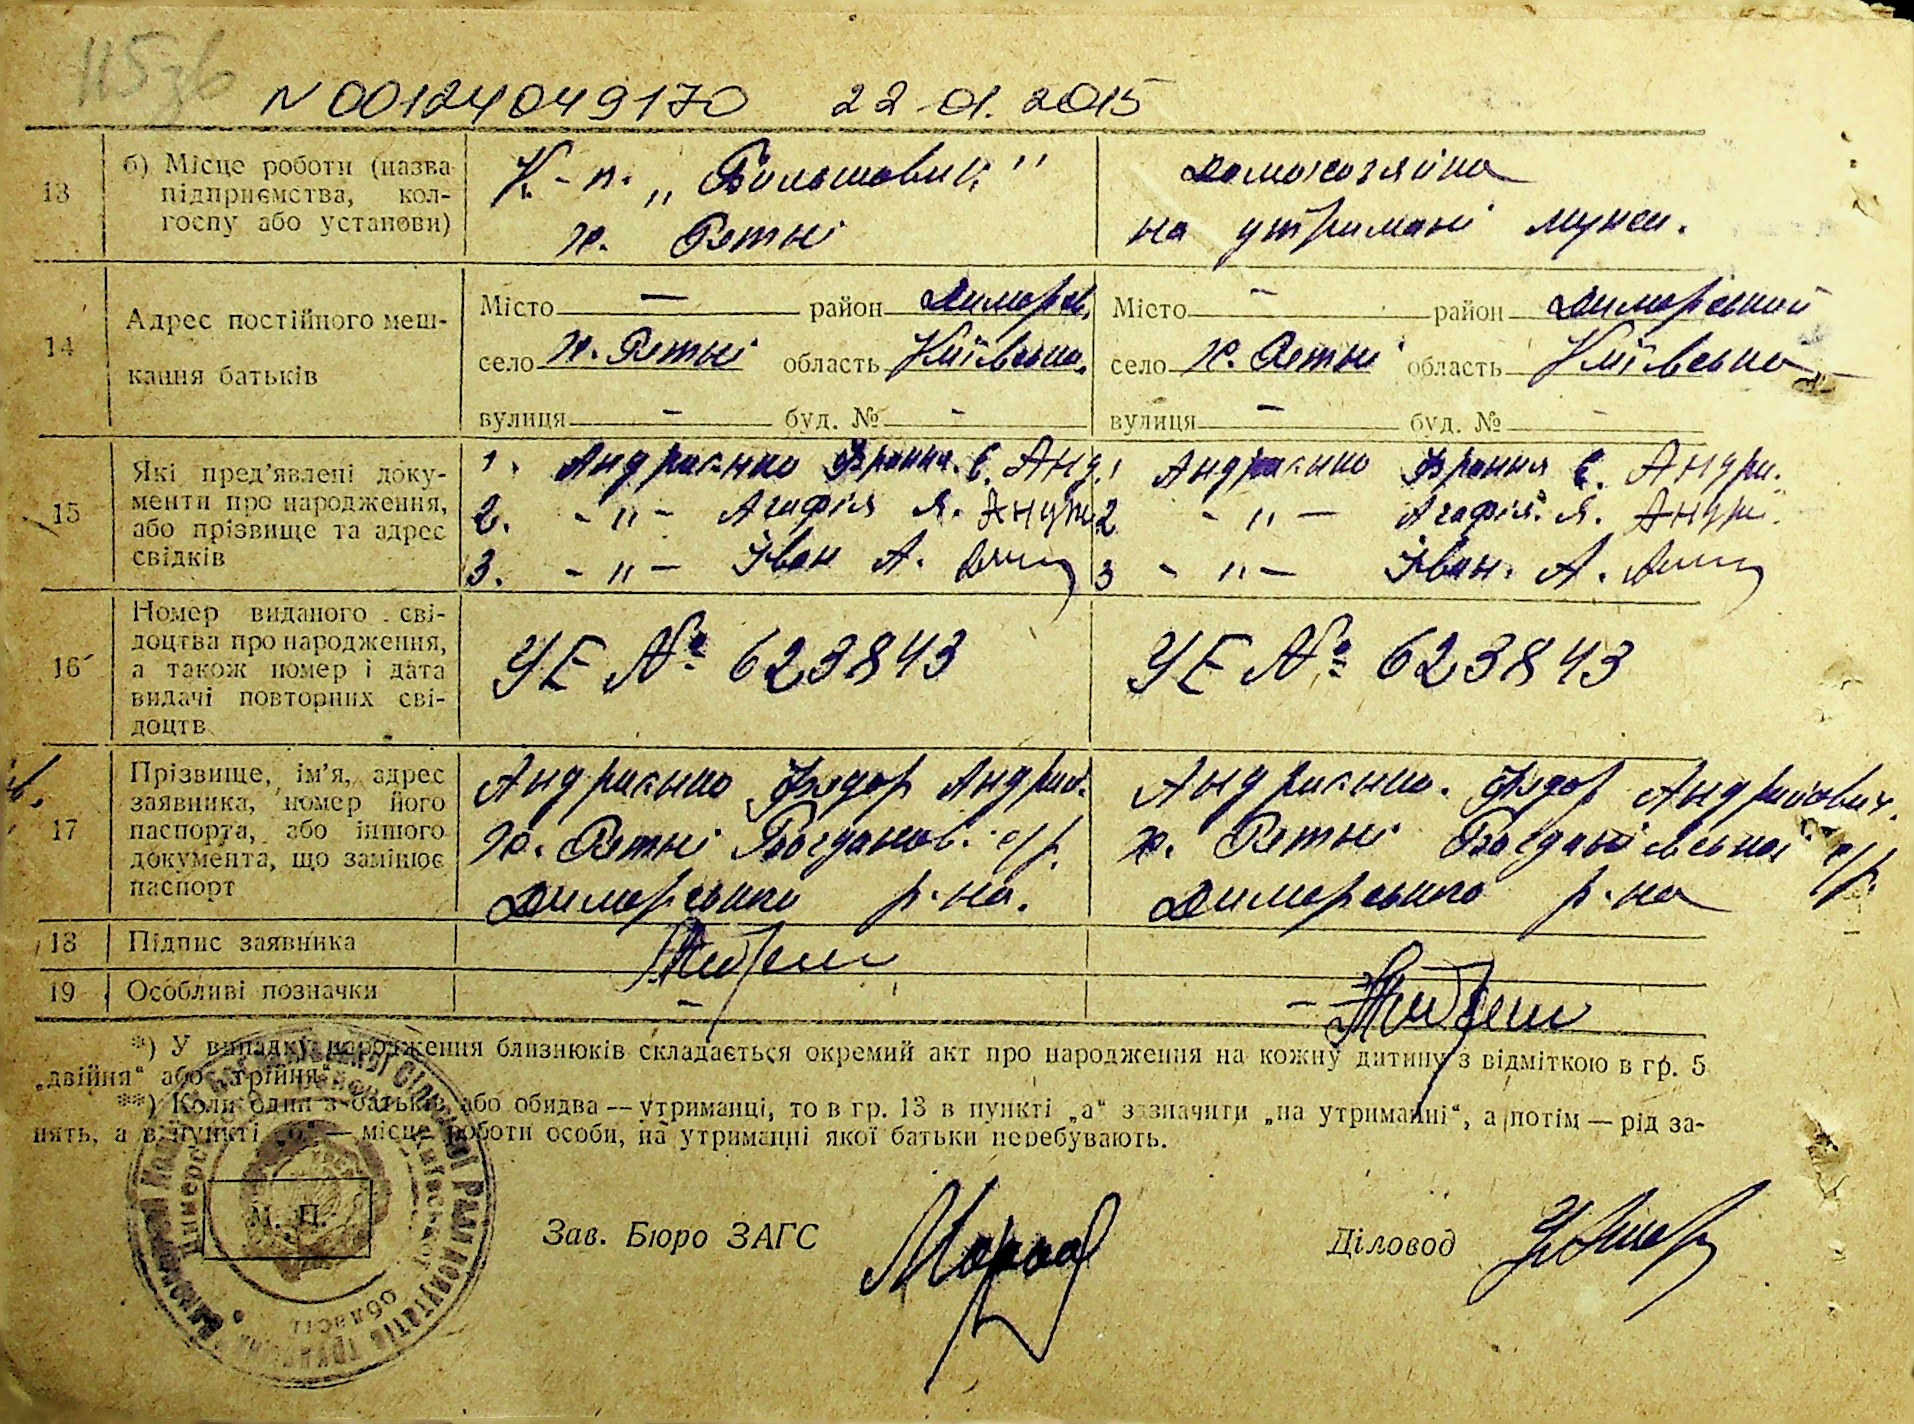 115зв
N 00124049170 22.01.2015
13 б) Місце роботи (назва підприємства, колгоспу або установи)
К-п. „Більшовик" домохозяйка
х. Ретні на утримані мужа.
14 Адрес постійного мешкання батьків
Місто — район Димерськ. Місто — район Димерський
село х. Ретні область Київська. село х. Ретні область Київська
вулиця — буд. № - вулиця — буд. № -
15 Які пред'явлені документи про народження, або прізвище та адрес свідків
1. 1
2. - " - Агафія Я. 2 - " - Агафія Я.
3. - " - Іван А. 3 - " - Іван. А.
16 Номер виданого свідоцтва про народження, а також номер і дата видачі повторних свідоцтв
УЕ № 623843 УЕ № 623843
17 Прізвище, ім'я, адрес заявника, номер його паспорта, або іншого документа, що замінює паспорт
Федор Федор Андрійович.
х. Ретні Богданів. с/р. х. Ретні Богданівської с/р.
Димерського р-на. Димерського р-на
18 Підпис заявника
19 Особливі позначки - -
*) У випадку народження близнюків складається окремий акт про народження на кожну дитину з відміткою в гр. 5
„двійня" або „трійня".
**) Коли один з батьків або обидва — утриманці, то в гр. 13 в пункті „а" зазначити „на утриманні", а потім — рід за-
нять, а в пункті „б" — місце роботи особи, на утриманні якої батьки перебувають.
М. П.
Зав. Бюро ЗАГС Діловод